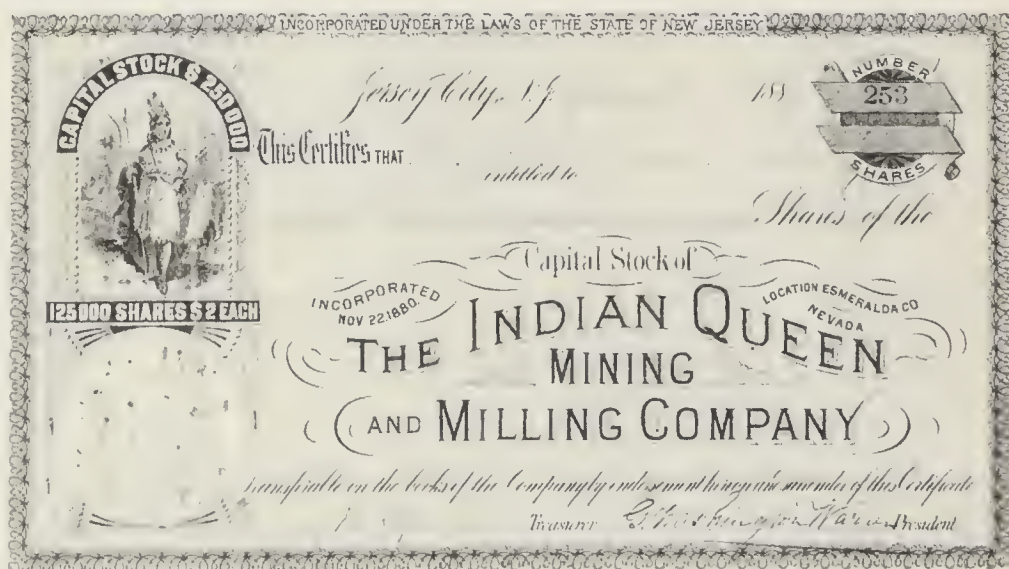 INCORPORATED UNDER THE LAWS OF THE STATE OF NEW JERSEY
CAPITAL STOCK $250000
Jersey City, N.J. 188
NUMBER
253
SHARES
This Certifies THAT
entitled to
Shares of the
Capital Stock of
125000 SHARES $2 EACH
INCORPORATED
NOV 22.1880.
LOCATION ESMERALDA CO
NEVADA
THE INDIAN QUEEN
MINING
AND MILLING COMPANY
transferable on the books of the Company by endorsement hereon and surrender of this Certificate
Treasurer President